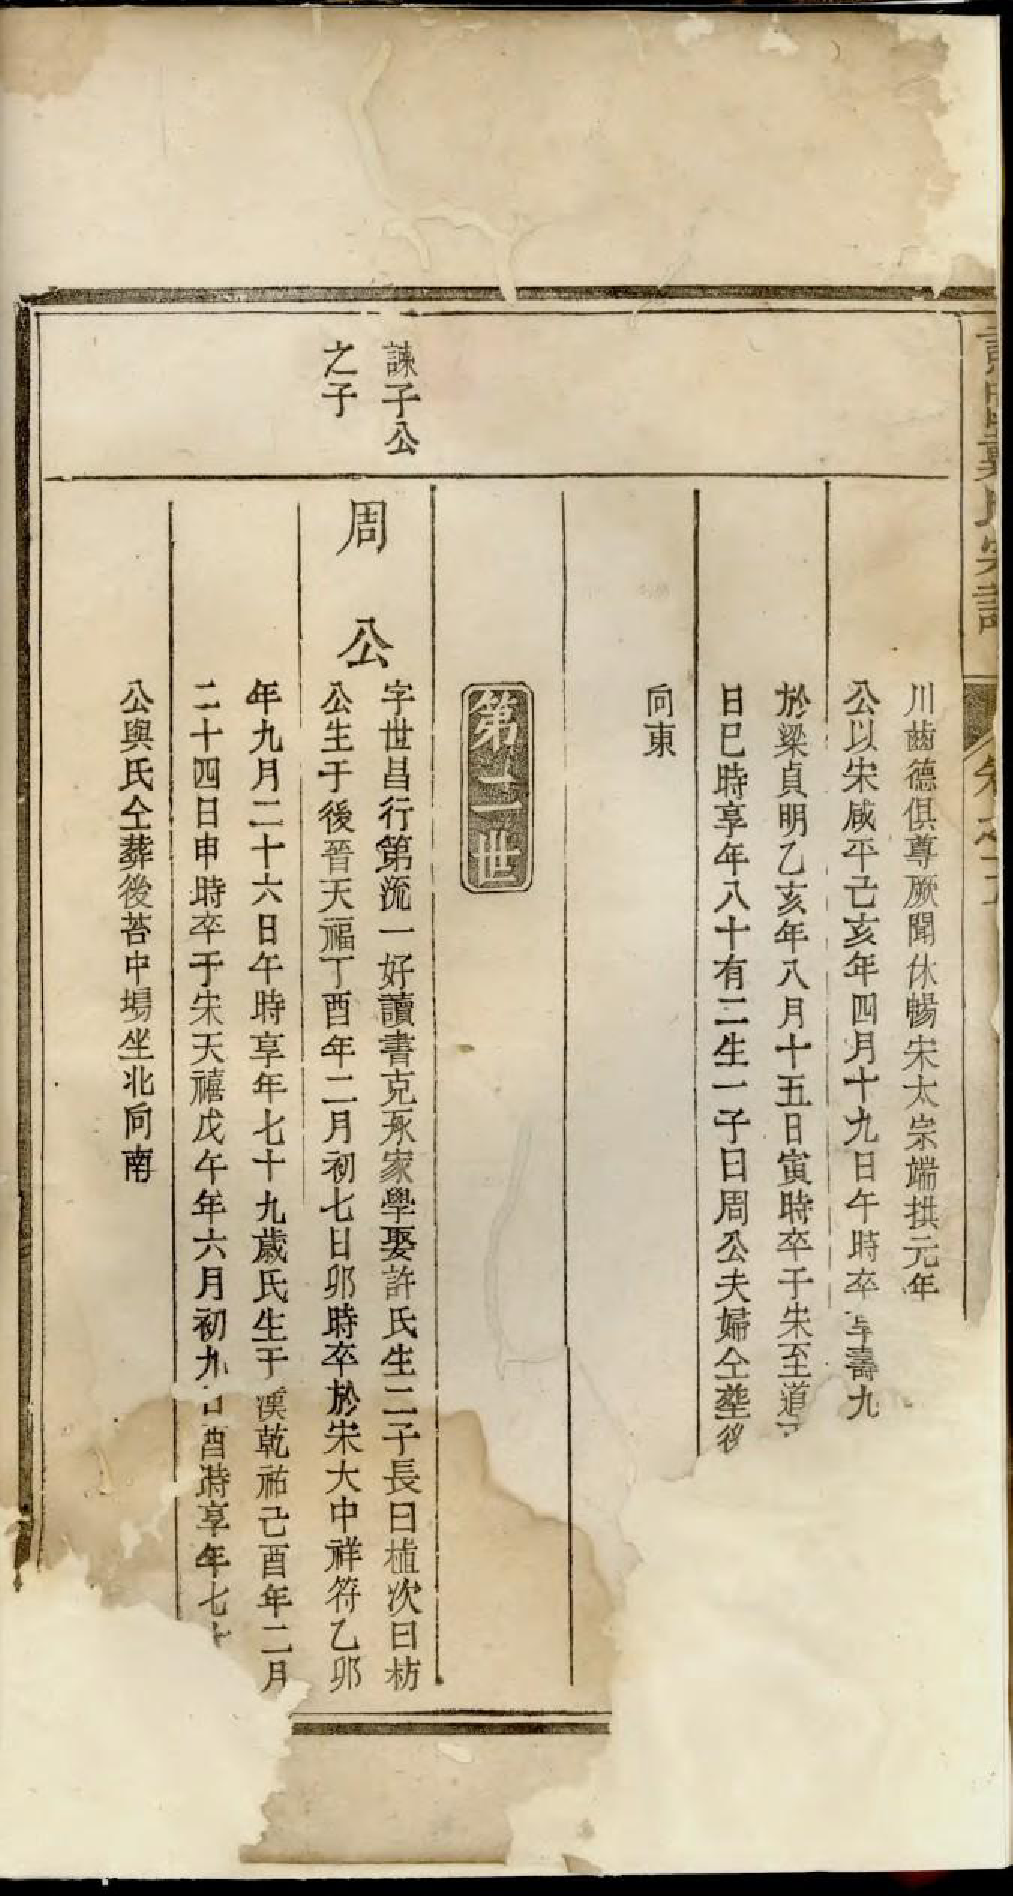 氏宗譜
卷之五
川齒德俱尊厥聞休暢宋太宗端拱元年
公以宋咸平己亥年四月十九日午時卒享壽九
於梁貞明乙亥年八月十五日寅時卒于宋至道
日巳時享年八十有二生一子曰周公夫婦仝塟後
向東
第二世
諫子公
之子
周公
字世昌行第流一好讀書克承家學娶許氏生二子長曰植次曰枋
公生于後晉天福丁酉年二月初七日卯時卒於宋大中祥符乙卯
年九月二十六日午時享年七十九歲氏生于漢乾祐己酉年二月
二十四日申時卒于宋天禧戊午年六月初九日酉時享年七十
公與氏仝葬後苔中場坐北向南